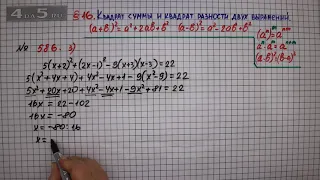 § 16. Квадрат суммы и квадрат разности двух выражений
(a+b)²=a²+2ab+b² (a-b)²=a²-2ab+b²
№ 586. 3)
5(x+2)²+(2x-1)²-9(x+3)(x-3)=22
5(x²+4x+4)+4x²-4x+1-9(x²-9)=22
5x²+20x+20+4x²-4x+1-9x²+81=22
16x=22-102
16x=-80
x=-80:16
x=